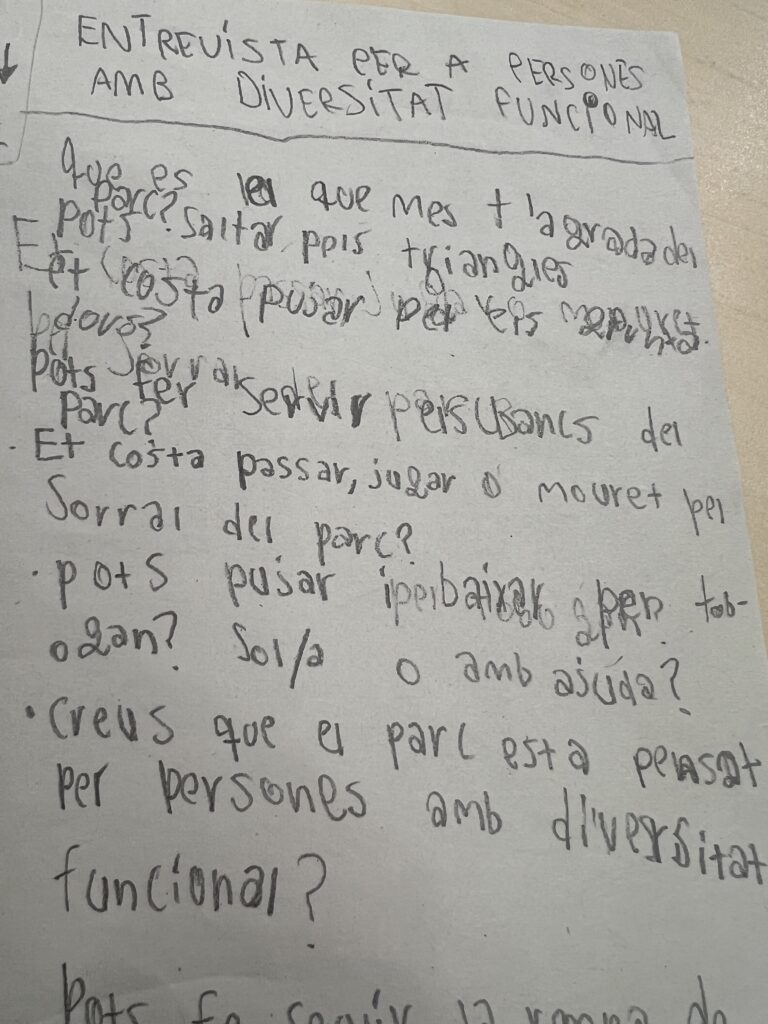 ENTREVISTA PER A PERSONES
AMB DIVERSITAT FUNCIONAL
que es el que mes t'agrada del
parc?
pots saltar pels triangles
Et costa pujar per els
pots fer servir pels Bancs del
parc?
· Et costa passar, jugar o mouret pel
sorral del parc?
· pots pujar i baixar per tob-
ogan? Sol/a o amb ajuda?
· creus que el parc esta pensat
per persones amb diversitat
funcional?
Pots fe